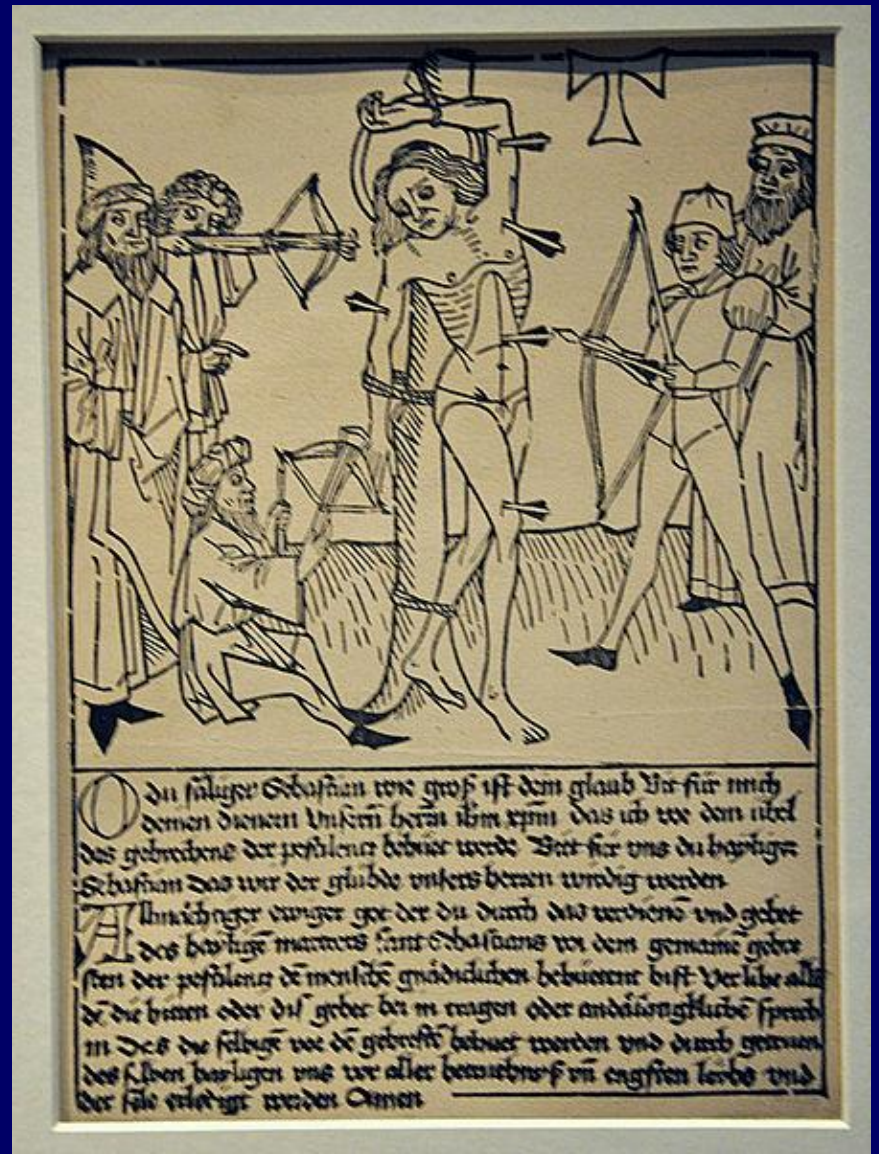 O du säliger Sebastian wie groß ist dein glaub Bit für mich
deinen dienern unsern herrn ihm xpm das ich vor dem übel
des gebrechens der pestilentz behüet werde Bitt für uns du hayliger
Sebastian das wir der glübde unsers herren wirdig werden
Allmächtiger ewiger got der du durch das verdienē und gebet
des hayligē martrers sant Sebastians vor dem gemainē gebre
sten der pestilentz dē menschē gnädiclichen behüetent bist Verlihe alle
dē die bitten oder dis gebet bei in tragen oder andächtigklichē sprech
in Das die selbigē vor dē gebrestē behuet werden und durch getruen
des selben hayligen uns vor aller betruebnuß uñ engsten leibs und
der säle erlediget werden Amen